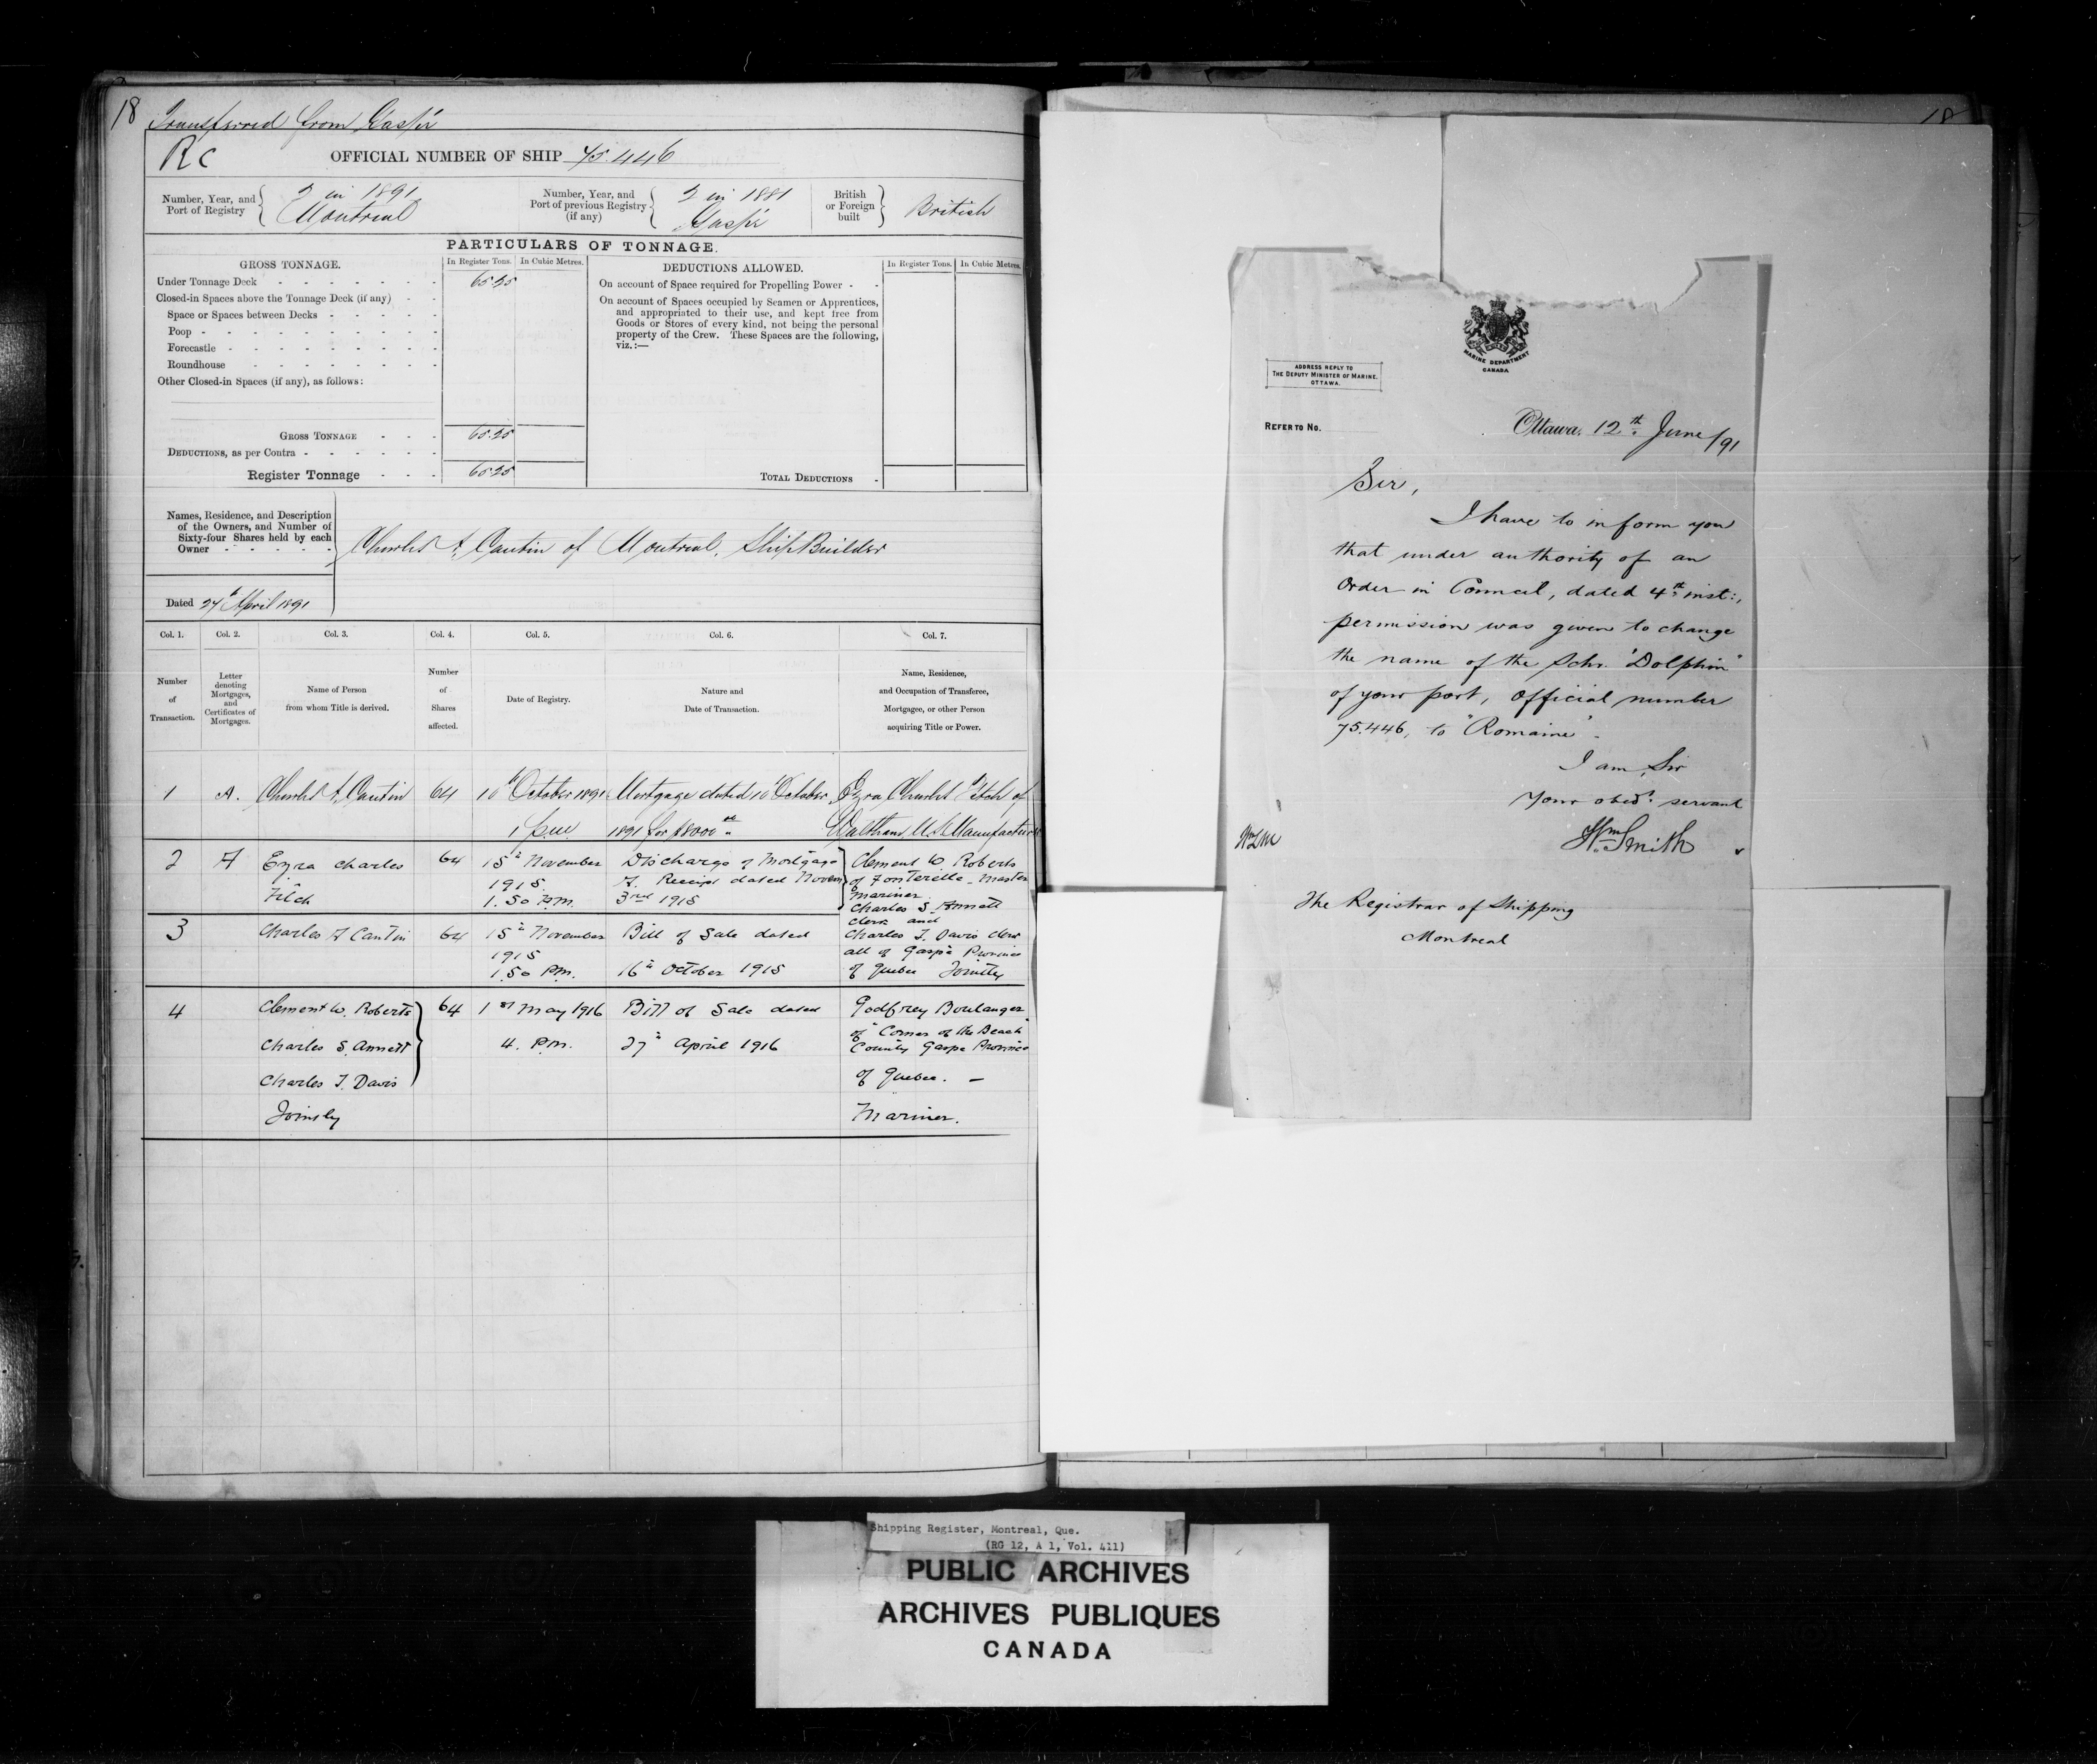 18 Transferred from Gaspé
RC
OFFICIAL NUMBER OF SHIP 75.446
Number, Year, and Port of Registry
2 in 1891
Montreal
Number, Year, and Port of previous Registry (if any)
2 in 1881
Gaspé
British or Foreign built
British
PARTICULARS OF TONNAGE.
GROSS TONNAGE.
In Register Tons.
In Cubic Metres.
Under Tonnage Deck - - - - - - - 65.25
Closed-in Spaces above the Tonnage Deck (if any) - -
Space or Spaces between Decks - - - - -
Poop - - - - - - - - - -
Forecastle - - - - - - - - -
Roundhouse - - - - - - - -
Other Closed-in Spaces (if any), as follows:
GROSS TONNAGE - - - 65.25
DEDUCTIONS, as per Contra - - - - - -
Register Tonnage - - - 65.25
DEDUCTIONS ALLOWED.
In Register Tons.
In Cubic Metres.
On account of Space required for Propelling Power - -
On account of Spaces occupied by Seamen or Apprentices,
and appropriated to their use, and kept free from
Goods or Stores of every kind, not being the personal
property of the Crew. These Spaces are the following,
viz.:—
TOTAL DEDUCTIONS -
Names, Residence, and Description
of the Owners, and Number of
Sixty-four Shares held by each
Owner - - - - -
Charles A. Cantin of Montreal, Ship Builder
Dated 27th April 1891
Col. 1.
Col. 2.
Col. 3.
Col. 4.
Col. 5.
Col. 6.
Col. 7.
Number
of
Transaction.
Letter
denoting
Mortgages,
and
Certificates of
Mortgages.
Name of Person
from whom Title is derived.
Number
of
Shares
affected.
Date of Registry.
Nature and
Date of Transaction.
Name, Residence,
and Occupation of Transferee,
Mortgagee, or other Person
acquiring Title or Power.
1 A. Charles A. Cantin 64 10th October 1891 Mortgage dated 10th October Ezra Charles Fitch of
1 p.m 1891 for $8000.00 Waltham U.S. Manufacturer
2 A Ezra Charles 64 15th November Discharge of Mortgage Clement W Roberts
Fitch 1915. A. Receipt dated Novem of Fonterelle - Master
1.50 P.M. 3rd 1915 Mariner
Charles S. Annett
Clerk and
3 Charles A Cantin 64 15th November Bill of Sale dated Charles J. Davis Clerk
1915 all of Gaspé Province
1.50 P.M. 16th October 1915 of Quebec Jointly
4 Clement W. Roberts 64 1st May 1916 Bill of Sale dated Godfrey Boulanger
of "Corner of the Beach"
Charles S. Annett 4. P.M. 27th April 1916 County Gaspe Province
Charles J. Davis of Quebec. —
Jointly Mariner.
18
MARINE DEPARTMENT
CANADA
ADDRESS REPLY TO
THE DEPUTY MINISTER OF MARINE.
OTTAWA.
REFER TO No.
Ottawa, 12th June /91
Sir,
I have to inform you
that under authority of an
Order in Council, dated 4th inst:,
permission was given to change
the name of the Schr. "Dolphin"
of your port, official number
75.446, to "Romaine".
I am, Sir
Your obedt. servant
Wm Smith
The Registrar of Shipping
Montreal
Shipping Register, Montreal, Que.
(RG 12, A 1, Vol. 411)
PUBLIC ARCHIVES
ARCHIVES PUBLIQUES
CANADA